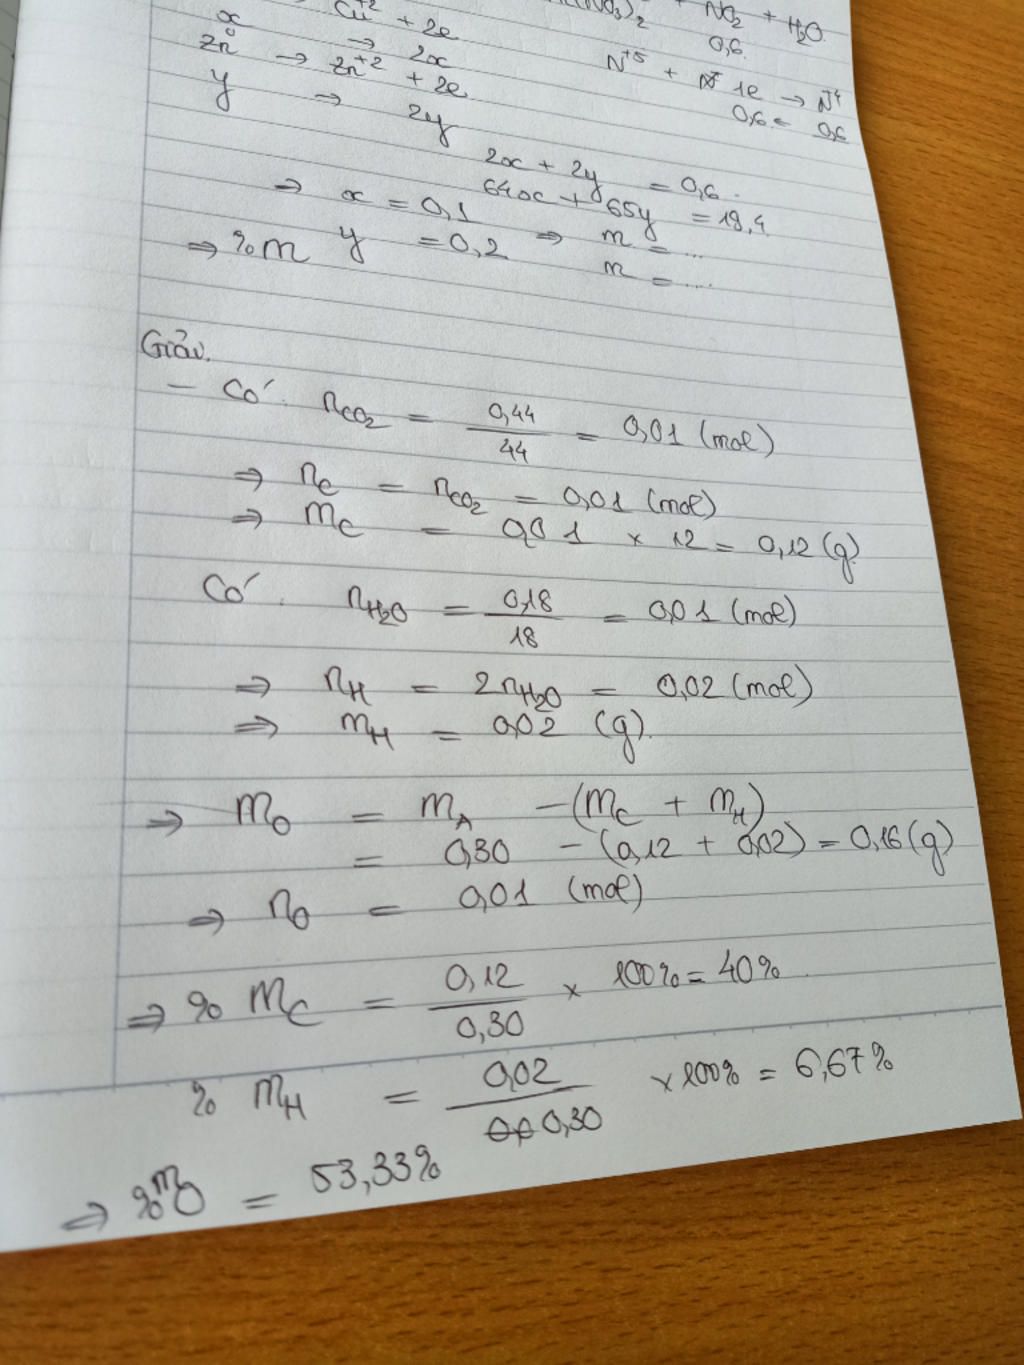 Cu⁺² + 2e
(NO₃)₂ + NO₂ + H₂O
x → 2x
0,6
Zn⁰ → Zn⁺² + 2e
N⁺⁵ + 1e → N⁺⁴
y → 2y
0,6 ← 0,6
2x + 2y = 0,6
64x + 65y = 18,4
⇒ x = 0,1
y = 0,2 ⇒ m = ...
m = ....
⇒ %m
Giải.
- Có: nCO₂ = 0,44/44 = 0,01 (mol)
⇒ nC = nCO₂ = 0,01 (mol)
⇒ mC = 0,01 × 12 = 0,12 (g)
Có: nH₂O = 0,18/18 = 0,01 (mol)
⇒ nH = 2nH₂O = 0,02 (mol)
⇒ mH = 0,02 (g).
⇒ mO = mA - (mC + mH)
= 0,30 - (0,12 + 0,02) = 0,16 (g)
⇒ nO = 0,01 (mol)
⇒ % mC = 0,12/0,30 × 100% = 40%
% mH = 0,02/0,30 × 100% = 6,67%
⇒ %mO = 53,33%